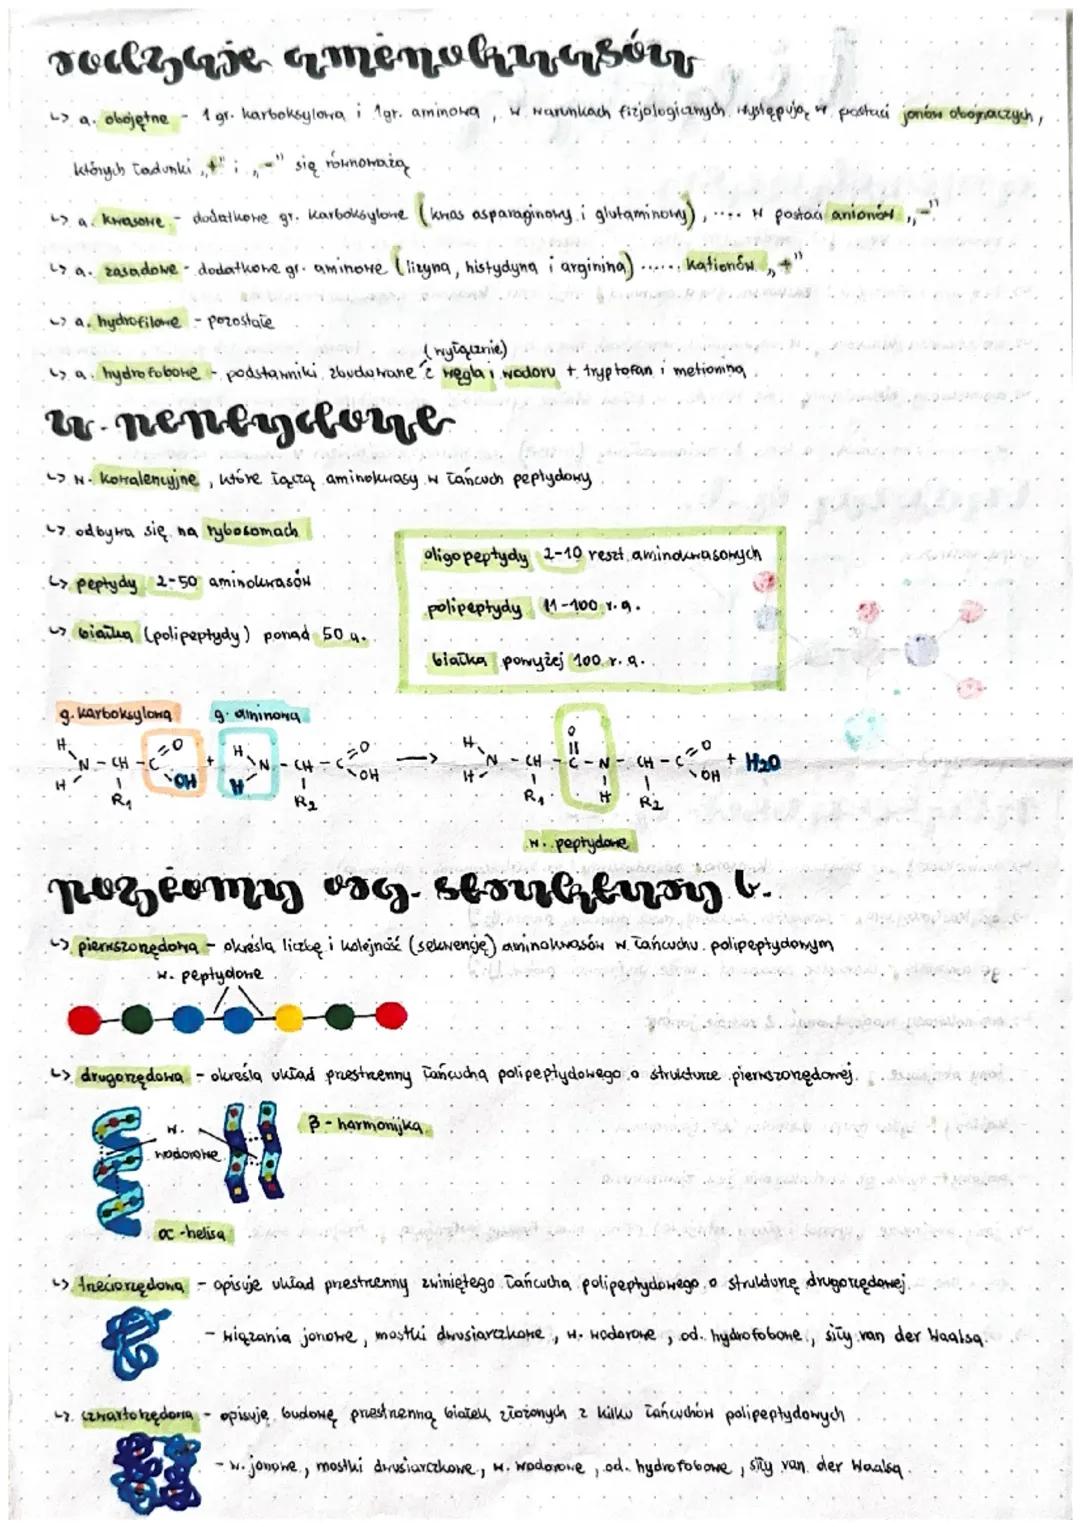 rodzaje aminokwasów
↳ a. obojętne - 1 gr. karboksylowa i 1 gr. aminowa, w warunkach fizjologicznych występują w postaci jonów obojnaczych,
których ładunki „+" i „-" się równoważą
↳ a. kwasowe - dodatkowe gr. karboksylowe (kwas asparaginowy i glutaminowy), .... w postaci anionów „-"
↳ a. zasadowe - dodatkowe gr. aminowe (lizyna, histydyna i arginina) ...... kationów „+"
↳ a. hydrofilowe - pozostałe
(wyłącznie)
↳ a. hydrofobowe - podstawniki zbudowane z węgla i wodoru + tryptofan i metionina
w. peptydowe
↳ w. kowalencyjne, które łączą aminokwasy w łańcuch peptydowy
↳ odbywa się na rybosomach
↳ peptydy 2-50 aminokwasów
↳ białka (polipeptydy) ponad 50 a.
oligopeptydy 2-10 reszt aminokwasowych
polipeptydy 11-100 r. a.
białka powyżej 100 r. a.
g. karboksylowa g. aminowa
H O H O H O O
N - CH - C + N - CH - C → N - CH - C - N - CH - C + H2O
H R1 OH H R2 OH H R1 H R2 OH
w. peptydowe
poziomy org. struktury b.
↳ pierwszorzędowa - określa liczbę i kolejność (sekwencję) aminokwasów w łańcuchu polipeptydowym
w. peptydowe
↳ drugorzędowa - określa układ przestrzenny łańcucha polipeptydowego o strukturze pierwszorzędowej.
β - harmonijka
w.
wodorowe
α - helisa
↳ trzeciorzędowa - opisuje układ przestrzenny zwiniętego łańcucha polipeptydowego o strukturę drugorzędowej.
- wiązania jonowe, mostki dwusiarczkowe, w. wodorowe, od. hydrofobowe, siły van der Waalsa.
↳ czwartorzędowa - opisuje budowę przestrzenną białek złożonych z kilku łańcuchów polipeptydowych
- w. jonowe, mostki dwusiarczkowe, w. wodorowe, od. hydrofobowe, siły van der Waalsa.